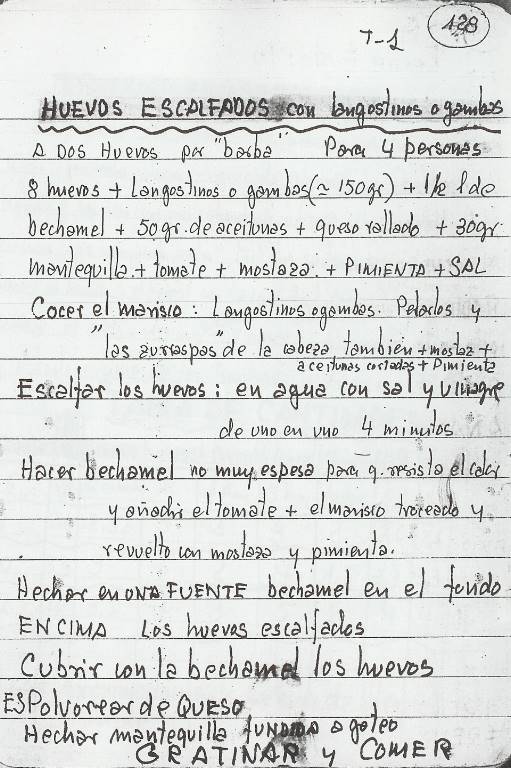 T-1
128
HUEVOS ESCALFADOS con langostinos o gambas
A DOS Huevos por "barba" Para 4 personas
8 huevos + Langostinos o gambas (≃ 150gr) + 1/2 l de
bechamel + 50gr. de aceitunas + queso rallado + 30gr
mantequilla + tomate + mostaza + PIMIENTA + SAL
Cocer el marisco: Langostinos o gambas. Pelarlos y
"las zurraspas" de la cabeza también + mostaz +
aceitunas cortadas + Pimienta
Escalfar los huevos: en agua con sal y vinagre
de uno en uno 4 minutos
Hacer bechamel no muy espesa para q. resista el calor
y añadir el tomate + el marisco troceado y
revuelto con mostaza y pimienta.
Hechar en UNA FUENTE bechamel en el fondo
ENCIMA Los huevos escalfados
Cubrir con la bechamel los huevos
ESPolvorear de QUESO
Hechar mantequilla FUNDIDA a goteo
GRATINAR y COMER